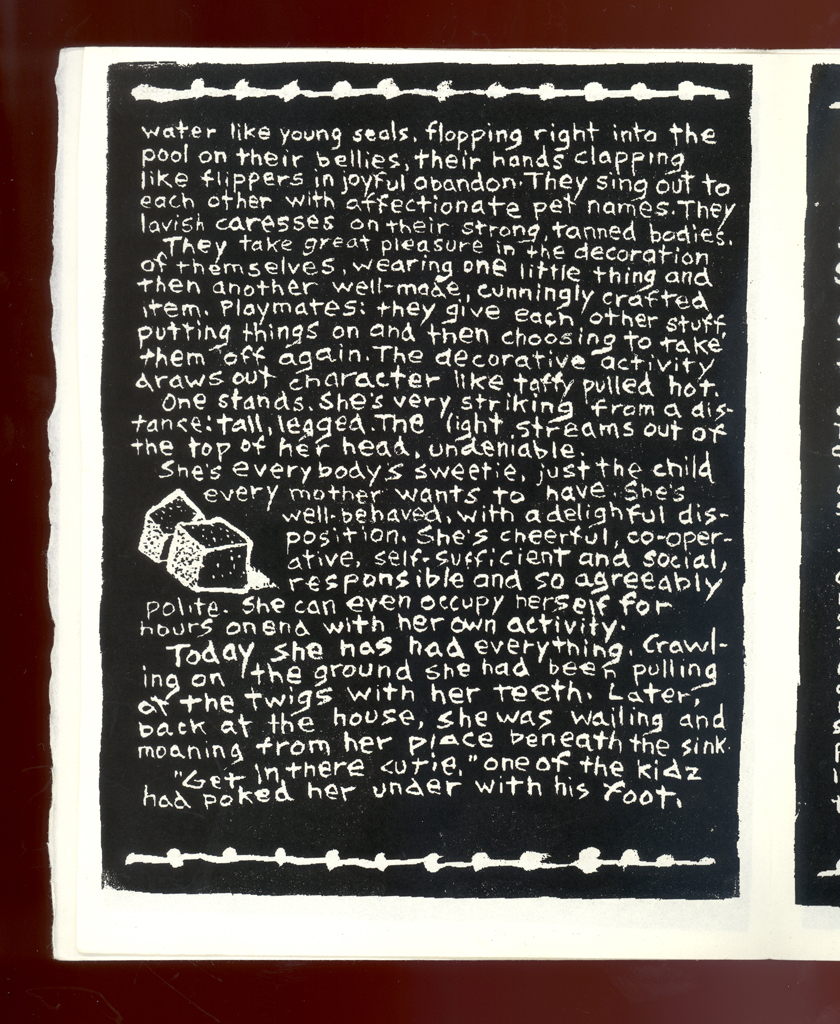 water like young seals, flopping right into the
pool on their bellies, their hands clapping
like flippers in joyful abandon. They sing out to
each other with affectionate pet names. They
lavish caresses on their strong, tanned bodies.
They take great pleasure in the decoration
of themselves, wearing one little thing and
then another well-made, cunningly crafted
item. Playmates: they give each other stuff,
putting things on and then choosing to take
them off again. The decorative activity
draws out character like taffy pulled hot.
One stands. She's very striking from a dis-
tance: tall, legged. The light streams out of
the top of her head, undeniable.
She's everybody's sweetie, just the child
every mother wants to have. She's
well-behaved, with a delightful dis-
position. She's cheerful, co-oper-
ative, self-sufficient and social,
responsible and so agreeably
polite. She can even occupy herself for
hours on end with her own activity.
Today she has had everything. Crawl-
ing on the ground she had been pulling
at the twigs with her teeth. Later,
back at the house, she was wailing and
moaning from her place beneath the sink.
"Get in there cutie," one of the kidz
had poked her under with his foot.